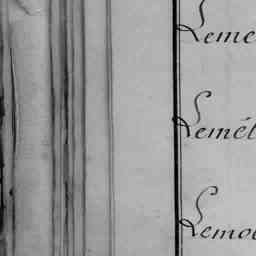 Leme
Lemét
Lemoi